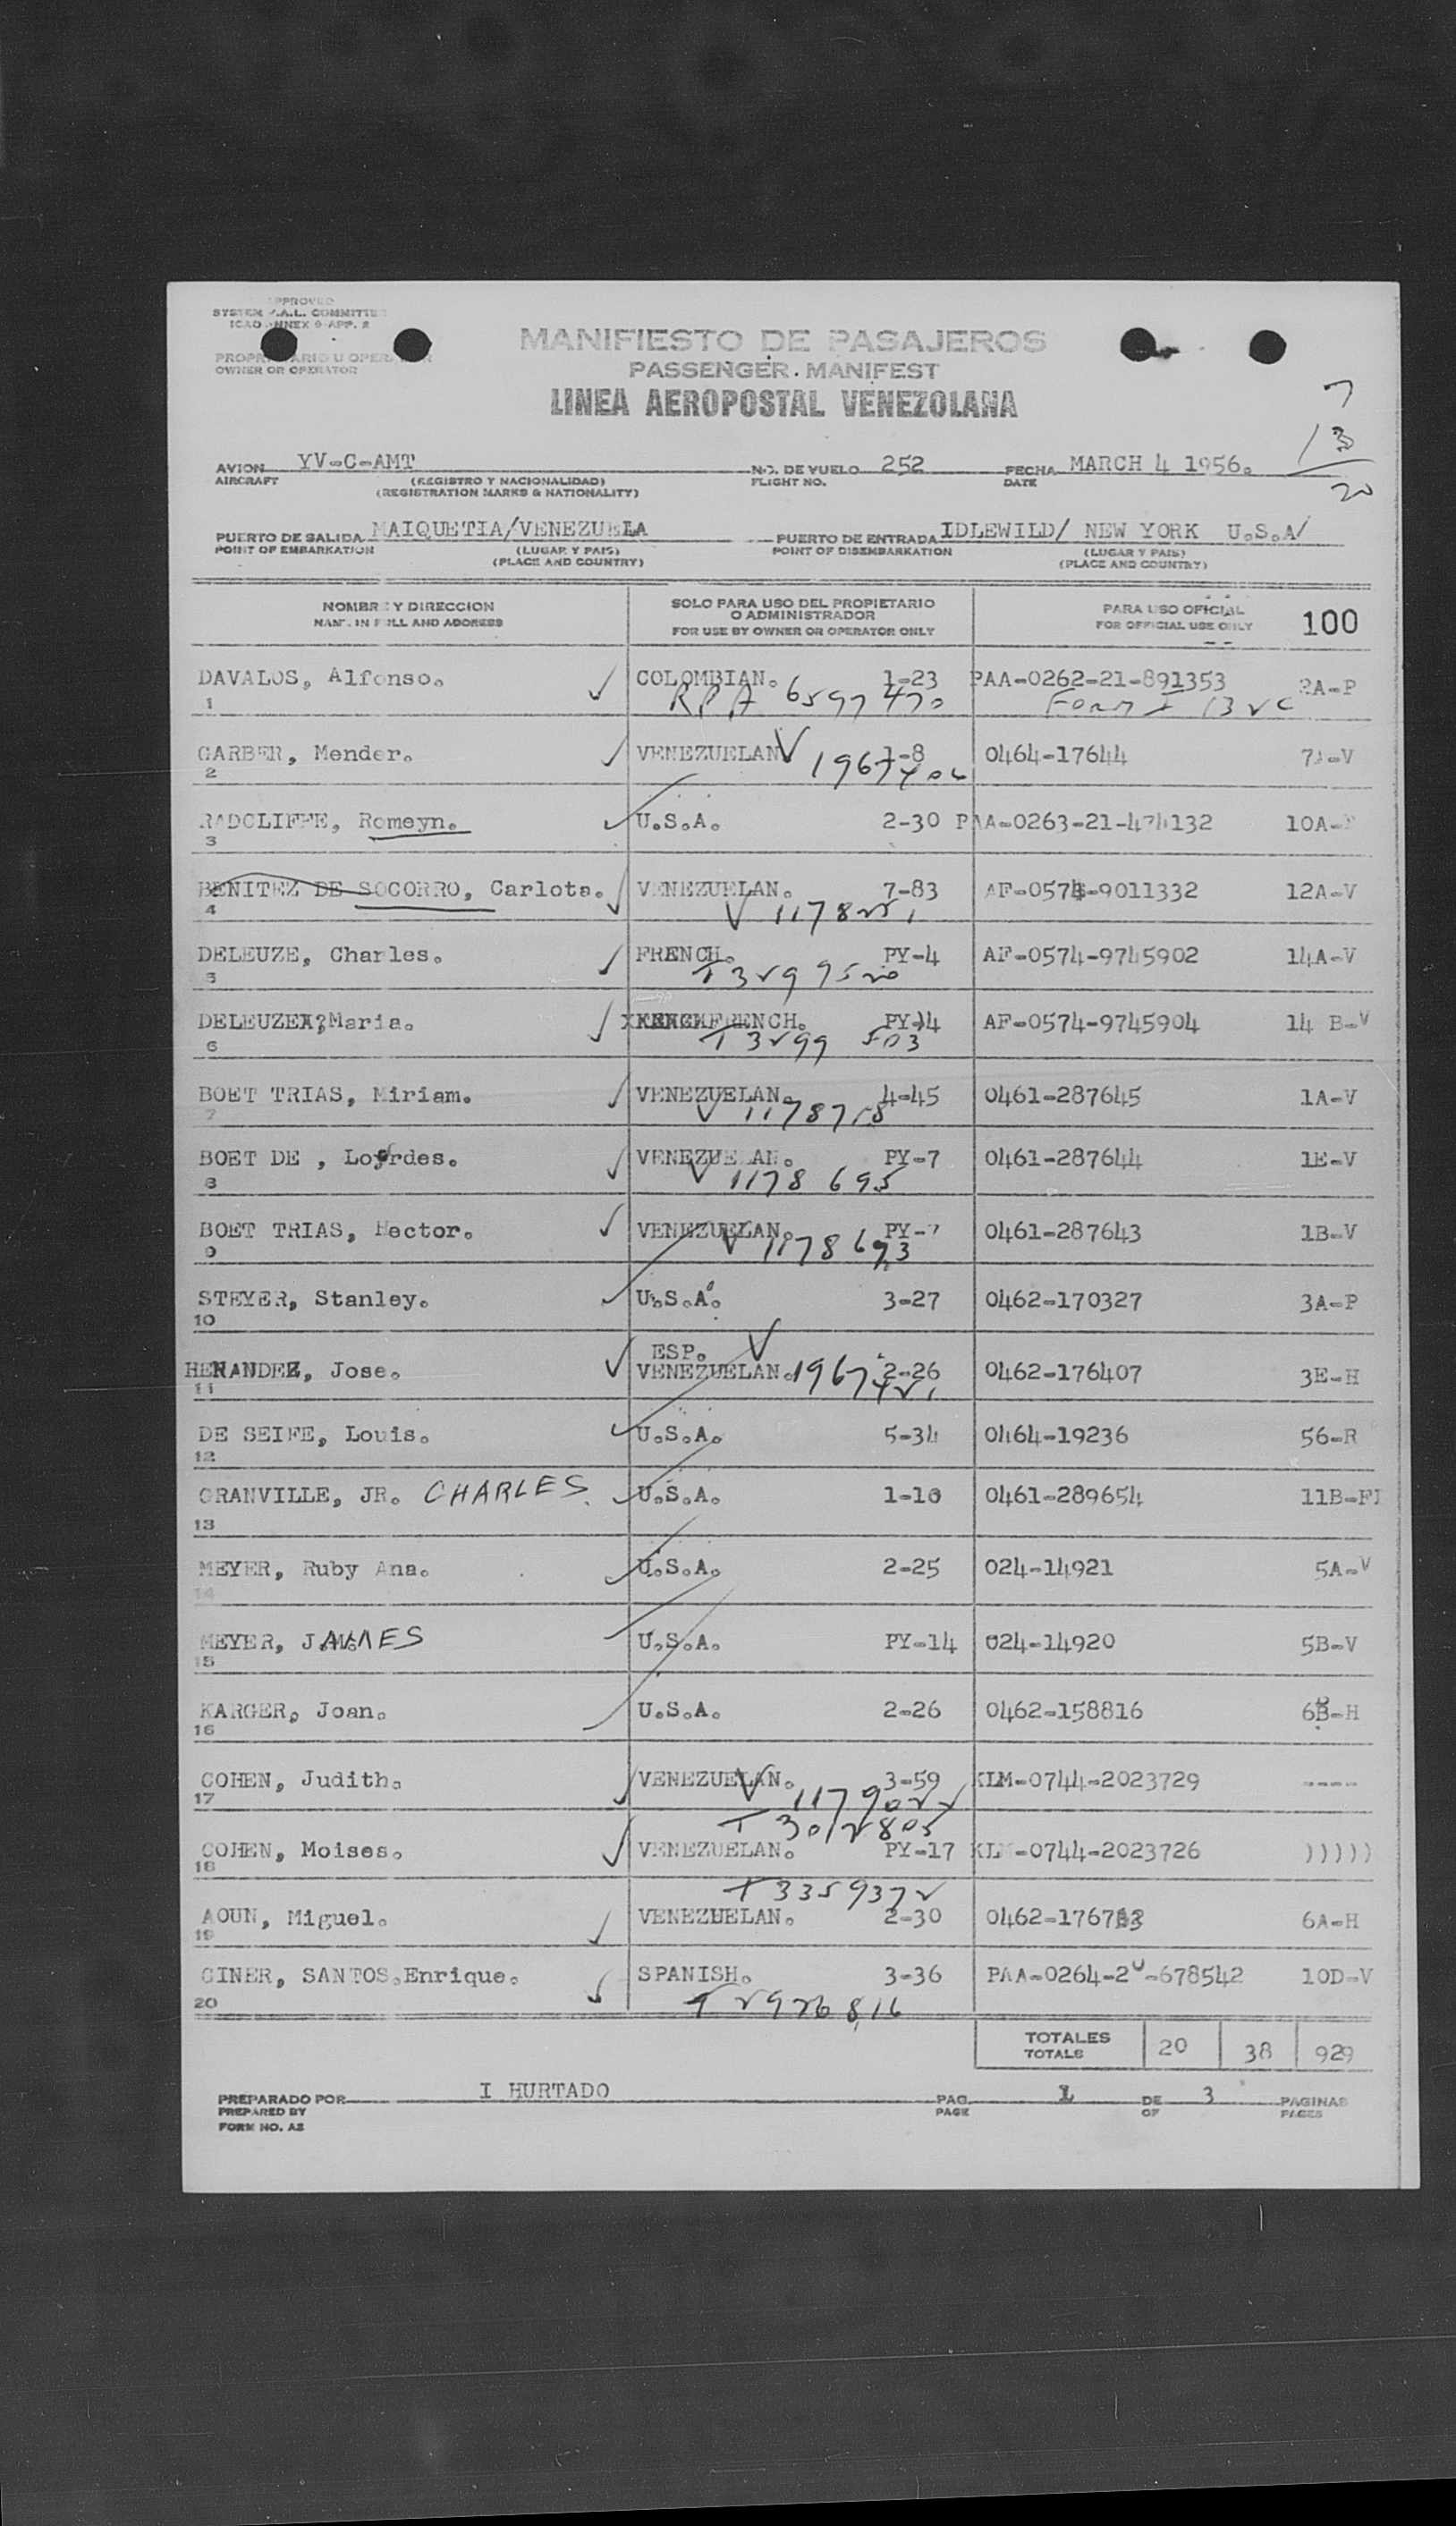 SYSTEM COMMITTEE
OWNER OR OPERATOR
MANIFIESTO DE PASAJEROS
PASSENGER MANIFEST
LINEA AEROPOSTAL VENEZOLANA
7
13
20
AVION YV-C-AMT NO. DE VUELO 252 FECHA MARCH 4 1956.
AIRCRAFT (REGISTRO Y NACIONALIDAD) FLIGHT NO. DATE
(REGISTRATION MARKS & NATIONALITY)
PUERTO DE SALIDA MAIQUETIA/VENEZUELA PUERTO DE ENTRADA IDLEWILD/ NEW YORK U.S.A/
POINT OF EMBARKATION (LUGAR Y PAIS) POINT OF DISEMBARKATION (LUGAR Y PAIS)
(PLACE AND COUNTRY) (PLACE AND COUNTRY)
NOMBRE Y DIRECCION SOLO PARA USO DEL PROPIETARIO O ADMINISTRADOR PARA USO OFICIAL 100
NAME IN FULL AND ADDRESS FOR USE BY OWNER OR OPERATOR ONLY FOR OFFICIAL USE ONLY
DAVALOS, Alfonso. COLOMBIAN. 1-23 PAA-0262-21-891353 2A-P
1 RPA 6597470 FORM I
GARBER, Mender. VENEZUELAN 1-8 0464-17644 7A-V
2
RADCLIFFE, Romeyn. U.S.A. 2-30 PAA-0263-21-474132 10A-
3
BENITEZ DE SOCORRO, Carlota. VENEZUELAN. 7-83 AF-0574-9011332 12A-V
4
DELEUZE, Charles. FRENCH. PY-4 AF-0574-9745902 14A-V
5
DELEUZE Maria. FRENCH. PY-14 AF-0574-9745904 14 B-V
6 T 3299 503
BOET TRIAS, Miriam. VENEZUELAN. 4-45 0461-287645 1A-V
7
BOET DE , Lourdes. VENEZUELAN. PY-7 0461-287644 1E-V
8 V 1178 695
BOET TRIAS, Hector. VENEZUELAN. PY-7 0461-287643 1B-V
9 V 1178 693
STEYER, Stanley. U.S.A. 3-27 0462-170327 3A-P
10
ESP. V
HERANDEZ, Jose. VENEZUELAN. 2-26 0462-176407 3E-H
11
DE SEIFE, Louis. U.S.A. 5-34 0464-19236 56-R
12
GRANVILLE, JR. CHARLES. U.S.A. 1-10 0461-289654 11B-FI
13
MEYER, Ruby Ana. U.S.A. 2-25 024-14921 5A-V
14
MEYER, JAMES U.S.A. PY-14 024-14920 5B-V
15
KARGER, Joan. U.S.A. 2-26 0462-158816 6B-H
16
COHEN, Judith. VENEZUELAN. 3-59 KLM-0744-2023729 ----
17
T 3012805
COHEN, Moises. VENEZUELAN. PY-17 KLM-0744-2023726 )))))
18
T 3359372
AOUN, Miguel. VENEZUELAN. 2-30 6A-H
19
GINER, SANTOS.Enrique. SPANISH. 3-36 PAA-0264-20-678542 10D-V
20 T 2926816
TOTALES 20 38 929
TOTALS
PREPARADO POR I HURTADO PAG. 1 DE 3 PAGINAS
PREPARED BY PAGE OF PAGES
FORM NO. A2